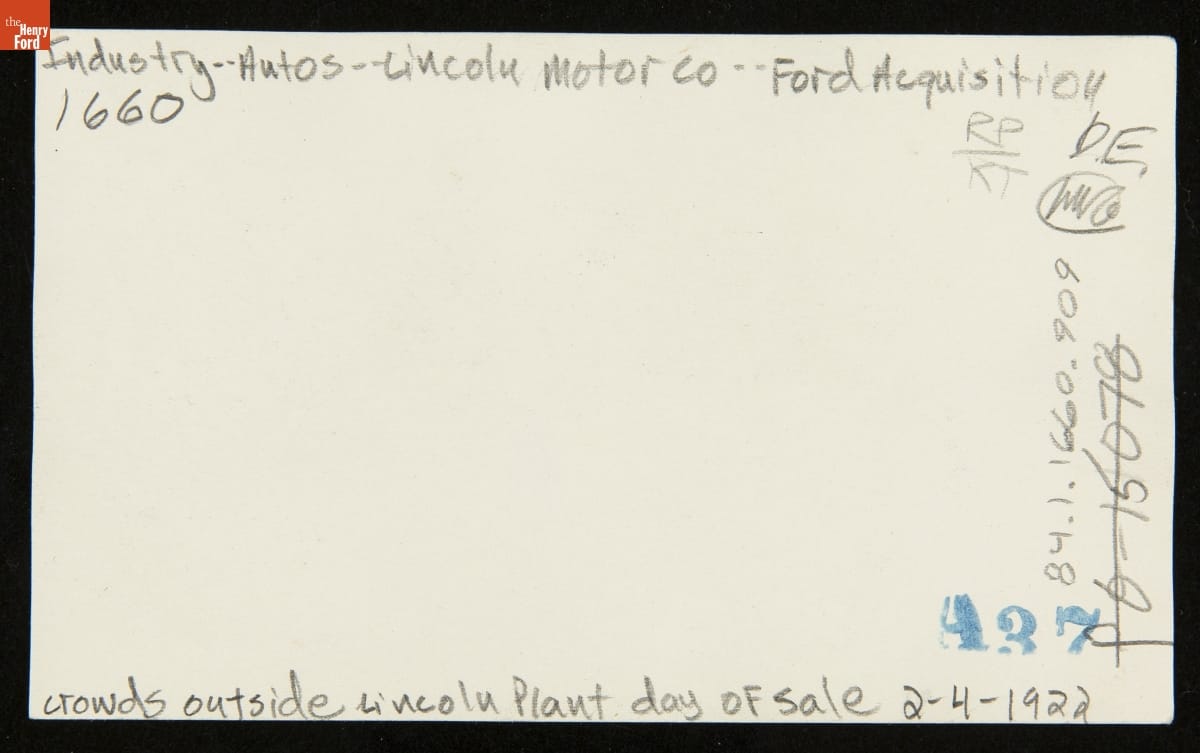 the
Henry
Ford
Industry--Autos--Lincoln Motor Co--Ford Acquisition
1660
RP
KT
D.E.
84.1.1660.909
P 6-15078
437
crowds outside Lincoln Plant day of sale 2-4-1922